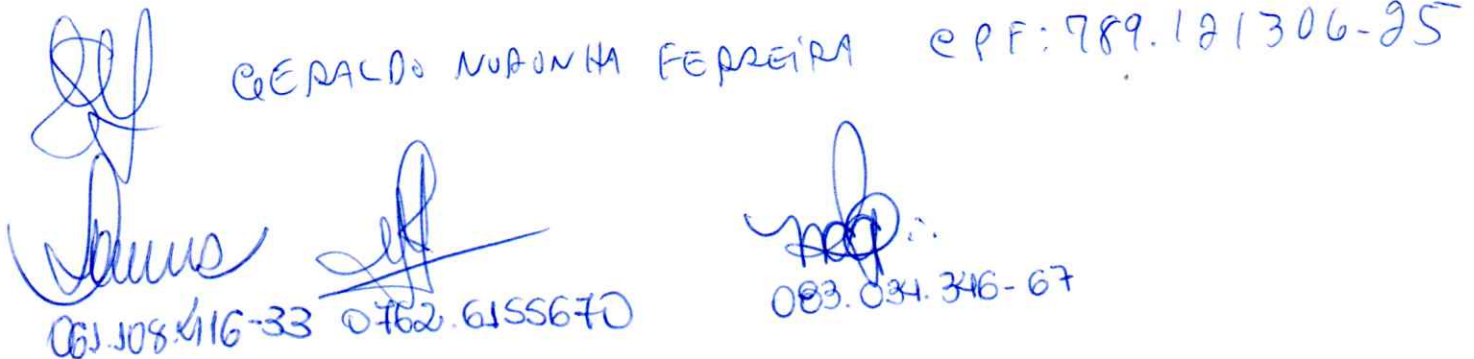 GERALDO NORONHA FERREIRA CPF: 789.121306-25
061.108.416-33 0762.6155670 083.034.346-67